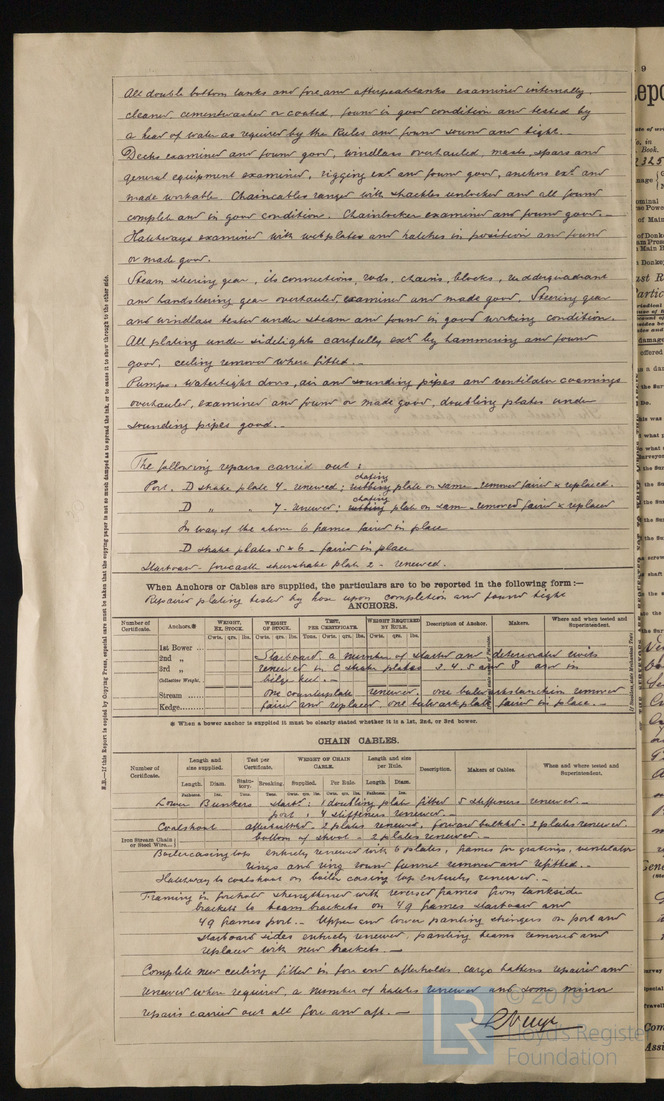 All double bottom tanks and fore and afterpeaktanks examined internally,
cleaned, cementwashed or coated, found in good condition and tested by
a head of water as required by the Rules and found sound and tight. _
Decks examined and found good, windlass overhauled, masts, spars and
general equipment examined, rigging exd and found good, anchors exd and
made workable. Chaincables ranged with shackles unlocked and all found
complete and in good condition. Chainlocker examined and found good. _
Hatchways examined with webplates and hatches in position and found
or made good.
Steam steering gear, its connections, rods, chains, blocks, rudderquadrant
and handsteering gear overhauled examined and made good. Steering gear
and windlass tested under steam and found in good working condition.
All plating under sidelights carefully exd by hammering and found
good, ceiling removed where fitted. _
Pumps, watertight doors, air and sounding pipes and ventilator coamings
overhauled, examined and found or made good, doubling plates under
sounding pipes good. _
The following repairs carried out :
chafing
Port. D strake plate 4 - renewed; plate on same - removed faired & replaced.
chafing
D " " 7 - renewed; plate on same - removed faired & replaced
In way of the above 6 frames faired in place
D strake plates 5 & 6 - faired in place
Starboard - forecastle sheerstrake plate 2 - renewed.
When Anchors or Cables are supplied, the particulars are to be reported in the following form :—
Repaired plating tested by hose upon completion and found tight
ANCHORS.
Number of Certificate. Anchors.* WEIGHT, EX. STOCK. WEIGHT OF STOCK. TEST, PER CERTIFICATE. WEIGHT REQUIRED BY RULE. Description of Anchor. Makers. Where and when tested and Superintendent.
Cwts. qrs. lbs. Cwts. qrs. lbs. Tons. Cwts. qrs. lbs. Cwts. qrs. lbs.
1st Bower
2nd " Starboard a number of started and deteriorated rivets
3rd " renewed in C strake plates 2. 4. 5 and 8 and in
Collective Weight. bilge keel. _
Stream one renewed, one bulwarkstanchion removed
Kedge faired and replaced, one bulwark plate faired in place. _
* When a bower anchor is supplied it must be clearly stated whether it is a 1st, 2nd, or 3rd bower.
CHAIN CABLES.
Number of Certificate. Length and size supplied. Test per Certificate. WEIGHT OF CHAIN CABLE. Length and size per Rule. Description. Makers of Cables. When and where tested and Superintendent.
Length. Diam. Statutory. Breaking. Supplied. Per Rule. Length. Diam.
Fathoms. Ins. Tons. Tons. Cwts. qrs. lbs. Cwts. qrs. lbs. Fathoms. Ins.
Lower Bunkers starbd : 1 doubling plate fitted 5 stiffeners renewed. _
port : 4 stiffeners renewed. _
Coalshoot afterbulkhd - 2 plates renewed, forward bulkhd - 2 plates renewed.
Iron Stream Chain or Steel Wire
bottom of shoot - 2 plates renewed. _
Boilercasing top entirely renewed with 6 plates, frames for gratings, ventilator
rings and ring round funnel removed and refitted. _
Hatchway to coalshoot on boiler casing top entirely renewed. _
Framing in forehold strengthened with reversed frames from tankside
brackets to beam brackets on 49 frames starboard and
49 frames port. _ Upper and lower panting stringers on port and
starboard sides entirely renewed, panting beams removed and
replaced with new brackets. _
Complete new ceiling fitted in fore and afterholds cargo battens repaired and
renewed where required, a number of hatches renewed and some minor
repairs carried out all fore and aft. _
© 2019
LR
Lloyd's Register
Foundation